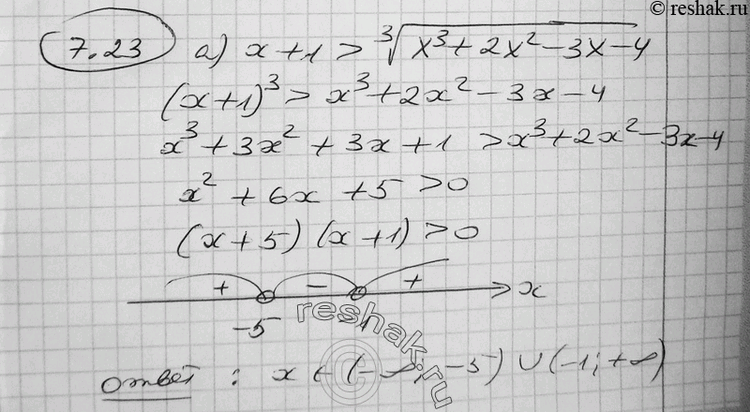 © reshak.ru
7.23 а) x+1 > ∛(x³+2x²−3x−4)
(x+1)³ > x³+2x²−3x−4
x³+3x²+3x+1 > x³+2x²−3x−4
x²+6x+5>0
(x+5)(x+1)>0
+ − + x
−5 −1
reshak.ru
©
ответ: x ∈ (−∞; −5) ∪ (−1; +∞)